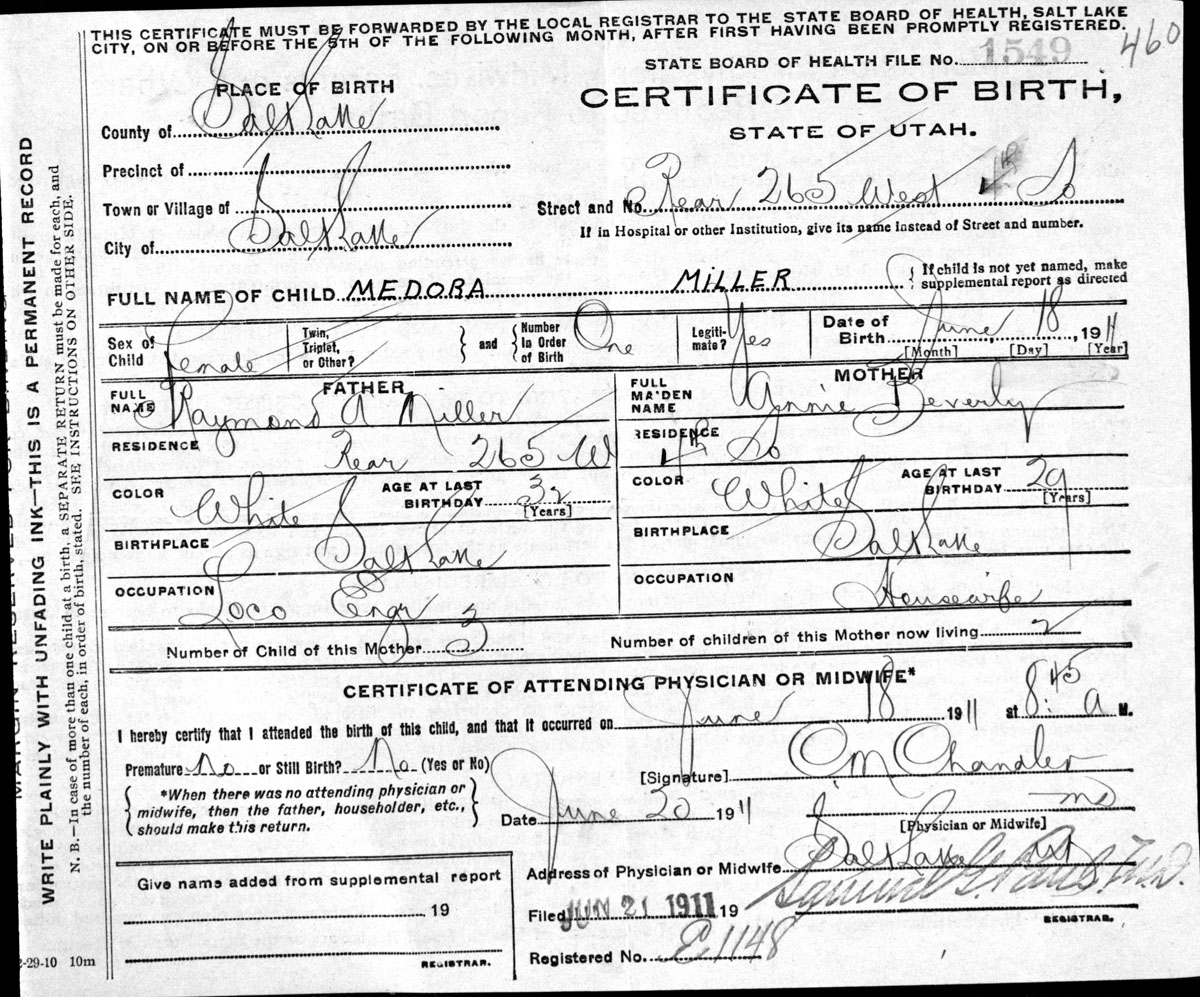 THIS CERTIFICATE MUST BE FORWARDED BY THE LOCAL REGISTRAR TO THE STATE BOARD OF HEALTH, SALT LAKE
CITY, ON OR BEFORE THE 5TH OF THE FOLLOWING MONTH, AFTER FIRST HAVING BEEN PROMPTLY REGISTERED.
460
STATE BOARD OF HEALTH FILE No. 1549
PLACE OF BIRTH
CERTIFICATE OF BIRTH,
STATE OF UTAH.
County of Salt Lake
Precinct of
Town or Village of
Street and No. Rear 265 West 4th So
City of Salt Lake
If in Hospital or other Institution, give its name instead of Street and number.
FULL NAME OF CHILD MEDORA MILLER
{ If child is not yet named, make
supplemental report as directed
Sex of Child Female
Twin, Triplet, or Other?
} and { Number In Order of Birth One
Legiti-mate? Yes
Date of Birth June 18, 1911
[Month] [Day] [Year]
FATHER
FULL NAME Raymond A Miller
RESIDENCE Rear 265 W
COLOR White
AGE AT LAST BIRTHDAY 32 [Years]
BIRTHPLACE Salt Lake
OCCUPATION Loco Engr
MOTHER
FULL MAIDEN NAME Annie Beverly
RESIDENCE 4th So
COLOR White
AGE AT LAST BIRTHDAY 29 [Years]
BIRTHPLACE Salt Lake
OCCUPATION Housewife
Number of Child of this Mother 3
Number of children of this Mother now living 2
CERTIFICATE OF ATTENDING PHYSICIAN OR MIDWIFE*
I hereby certify that I attended the birth of this child, and that it occurred on June 18 1911 at 8:45 A M.
Premature No or Still Birth? No (Yes or No)
{ *When there was no attending physician or
midwife, then the father, householder, etc.,
should make this return. }
[Signature] CM Chandler
MD
[Physician or Midwife]
Date June 20 1911
Address of Physician or Midwife Salt Lake
Give name added from supplemental report
19
REGISTRAR.
Filed JUN 21 1911 19
REGISTRAR.
Registered No. E1148
2-29-10 10m
WRITE PLAINLY WITH UNFADING INK—THIS IS A PERMANENT RECORD
N. B.—In case of more than one child at a birth, a SEPARATE RETURN must be made for each, and
the number of each, in order of birth, stated. SEE INSTRUCTIONS ON OTHER SIDE.